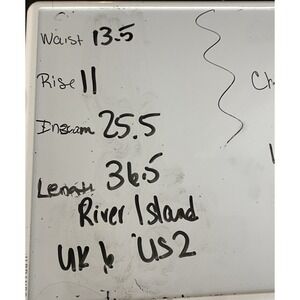 Waist 13.5
Rise 11
Inseam 25.5
Length 36.5
River Island
UK 6 US 2
Ch